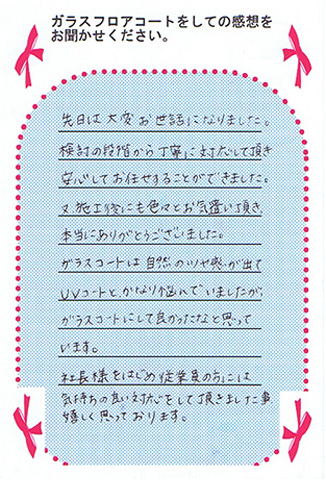 ガラスフロアコートをしての感想を
お聞かせください。
先日は大変お世話になりました。
検討の段階から丁寧に対応して頂き
安心してお任せすることができました。
又、施工後にも色々とお気遣い頂き、
本当にありがとうございました。
ガラスコートは自然のツヤ感が出て
UVコートと、かなり悩んでいましたが、
ガラスコートにして良かったなと思って
います。
社長様をはじめ従業員の方には
気持ちの良い対応をして頂きました事
嬉しく思っております。